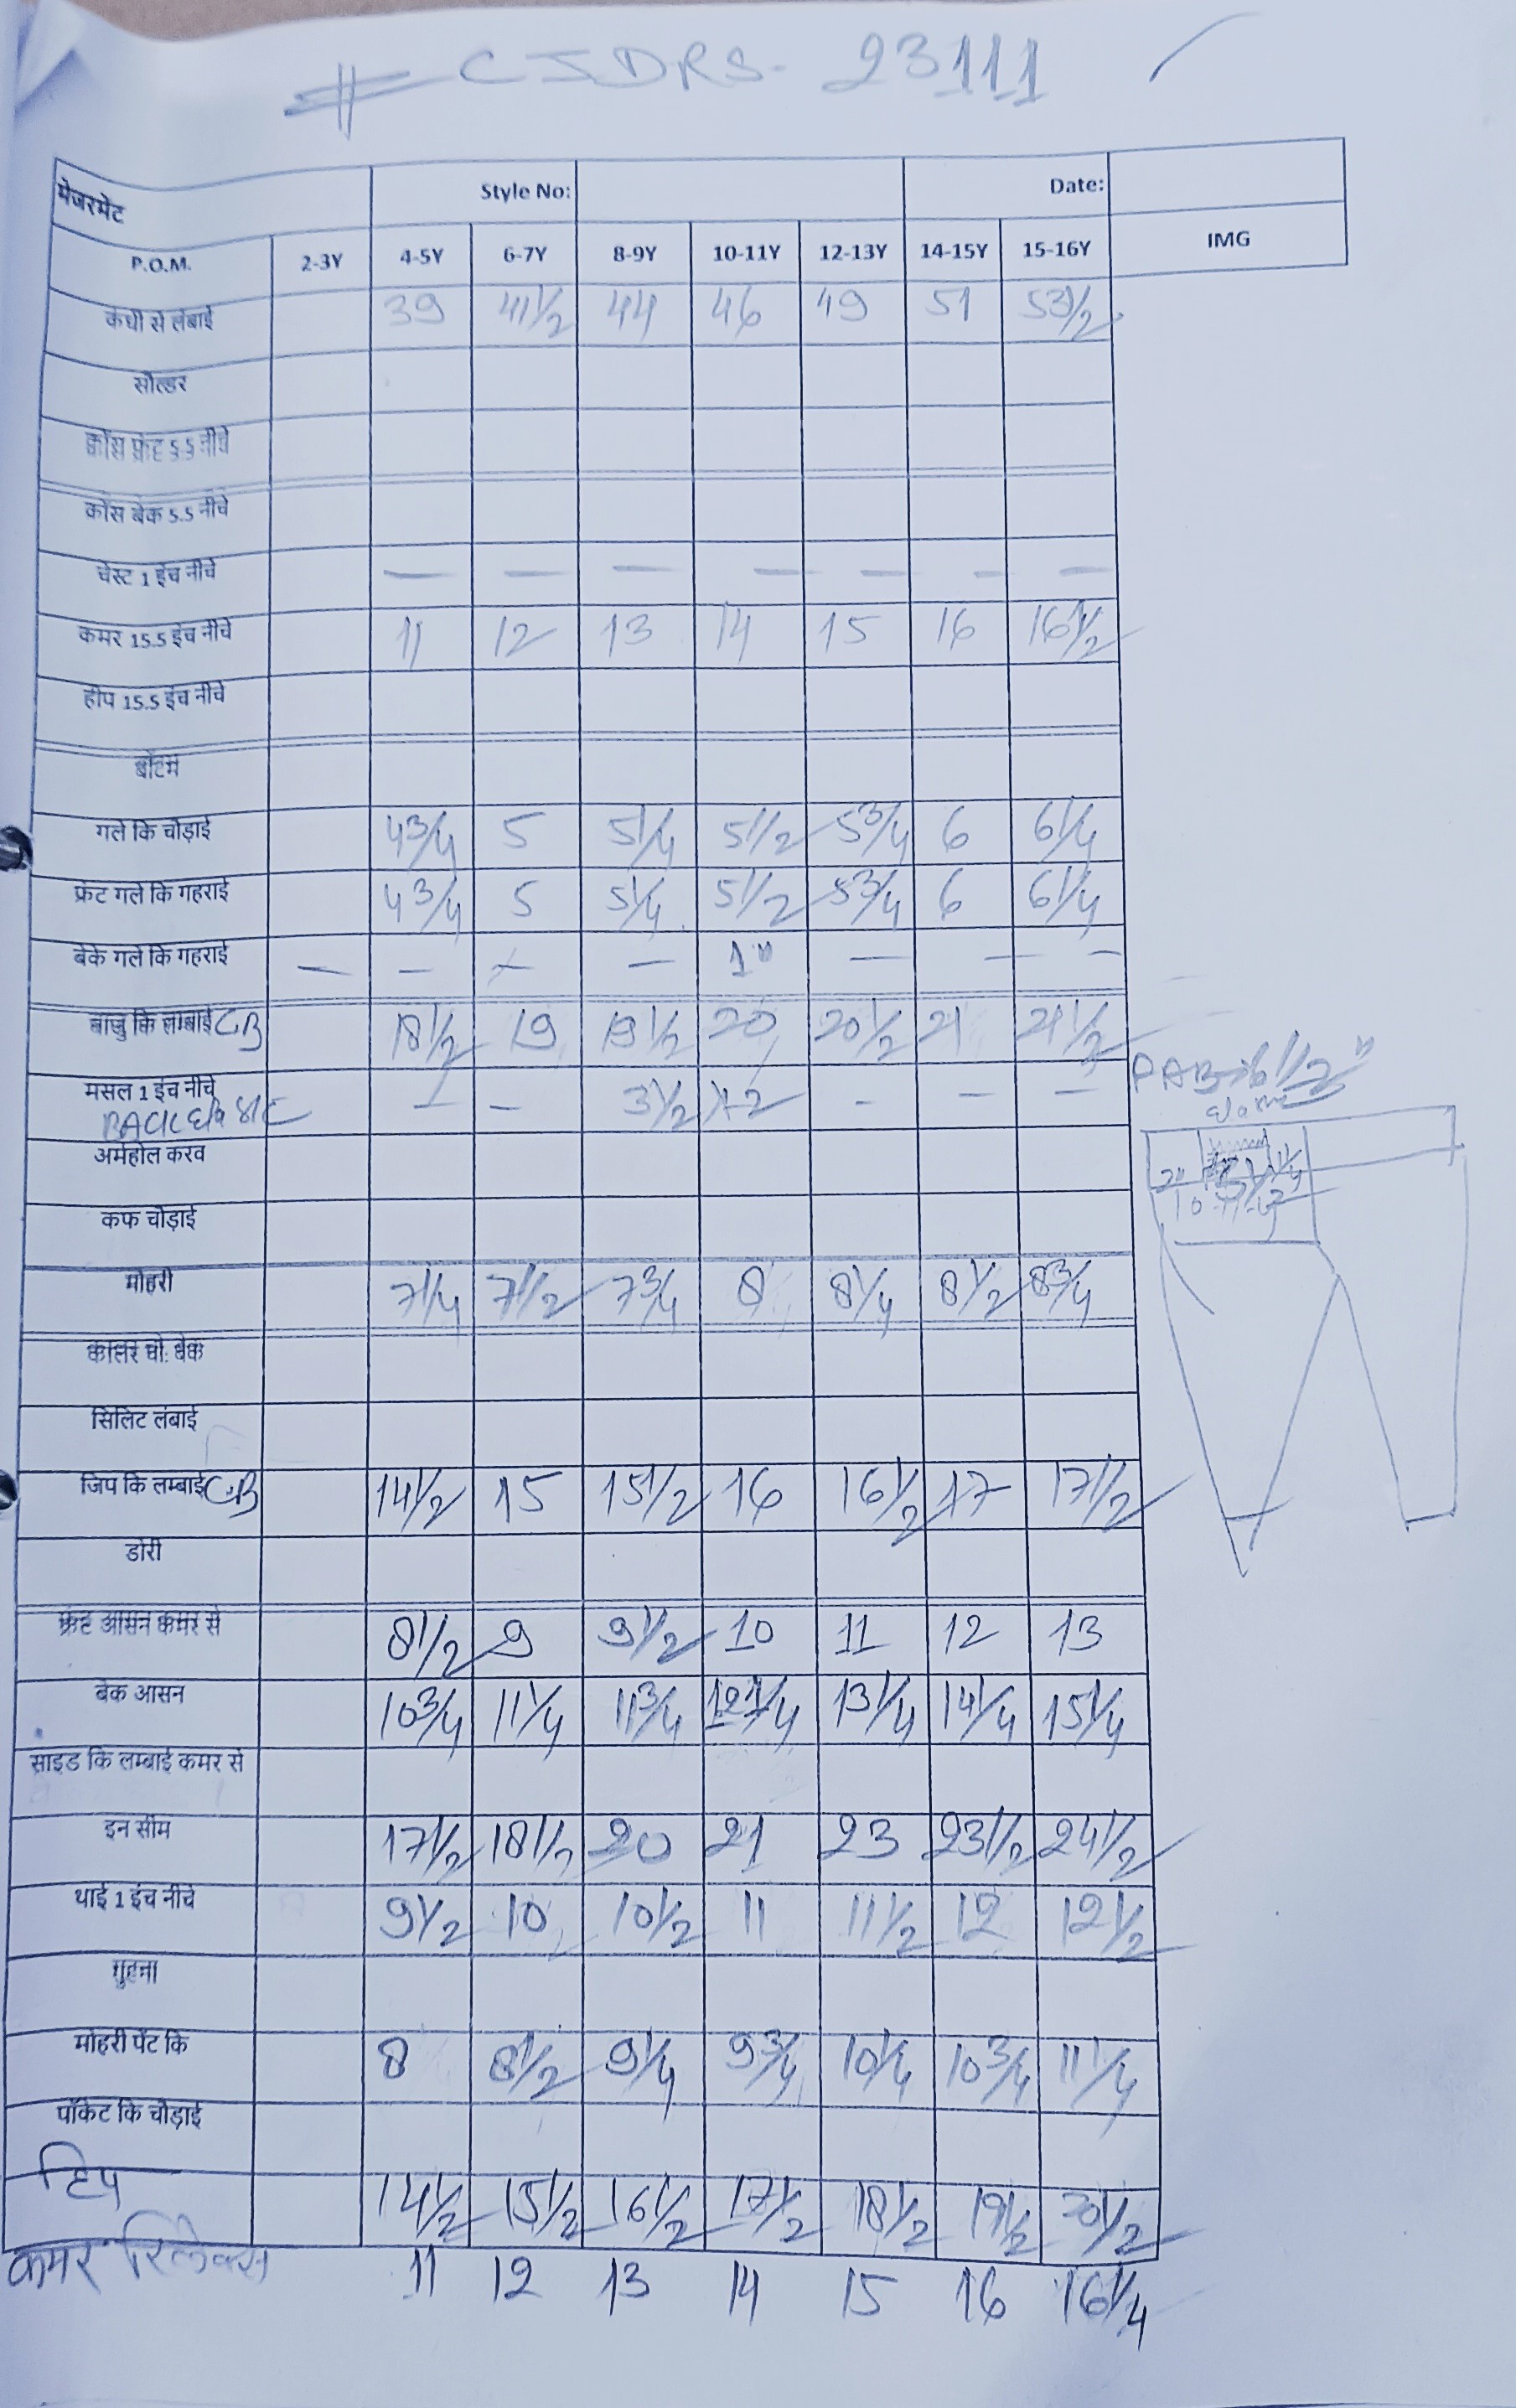 # CJDRS- 23111
मेजरमेंट Style No: Date:
P.O.M. 2-3Y 4-5Y 6-7Y 8-9Y 10-11Y 12-13Y 14-15Y 15-16Y IMG
कंधी से लंबाई 39 41 1/2 44 46 49 51 53 1/2
सोल्डर
क्रोस फ्रंट 5.5 नीचे
क्रोस बेक 5.5 नीचे
चेस्ट 1 इंच नीचे — — — — — — —
कमर 15.5 इंच नीचे 11 12 13 14 15 16 16 1/2
हीप 15.5 इंच नीचे
बॉटम
गले कि चोड़ाई 4 3/4 5 5 1/4 5 1/2 5 3/4 6 6 1/4
फ्रंट गले कि गहराई 4 3/4 5 5 1/4 5 1/2 5 3/4 6 6 1/4
बेके गले कि गहराई — — — — 1" — — —
बाजु कि लम्बाई CB 18 1/2 19 19 1/2 20 20 1/2 21 21 1/2
मसल 1 इंच नीचे — — 3 1/2 X 2 — — —
BACK
अर्महोल करव
कफ चोड़ाई
मोहरी 7 1/4 7 1/2 7 3/4 8 8 1/4 8 1/2 8 3/4
कालर चो. बेक
सिलिट लंबाई
जिप कि लम्बाई CB 14 1/2 15 15 1/2 16 16 1/2 17 17 1/2
डोरी
फ्रंट आसन कमर से 8 1/2 9 9 1/2 10 11 12 13
बेक आसन 10 3/4 11 1/4 11 3/4 12 1/4 13 1/4 14 1/4 15 1/4
साइड कि लम्बाई कमर से
इन सीम 17 1/2 18 1/2 20 21 23 23 1/2 24 1/2
थाई 1 इंच नीचे 9 1/2 10 10 1/2 11 11 1/2 12 12 1/2
गुहना
मोहरी पेंट कि 8 8 1/2 9 1/4 9 3/4 10 1/4 10 3/4 11 1/4
पॉकेट कि चौड़ाई
हिप 14 1/2 15 1/2 16 1/2 17 1/2 18 1/2 19 1/2 20 1/2
कमर रिलेक्स 11 12 13 14 15 16 16 1/4